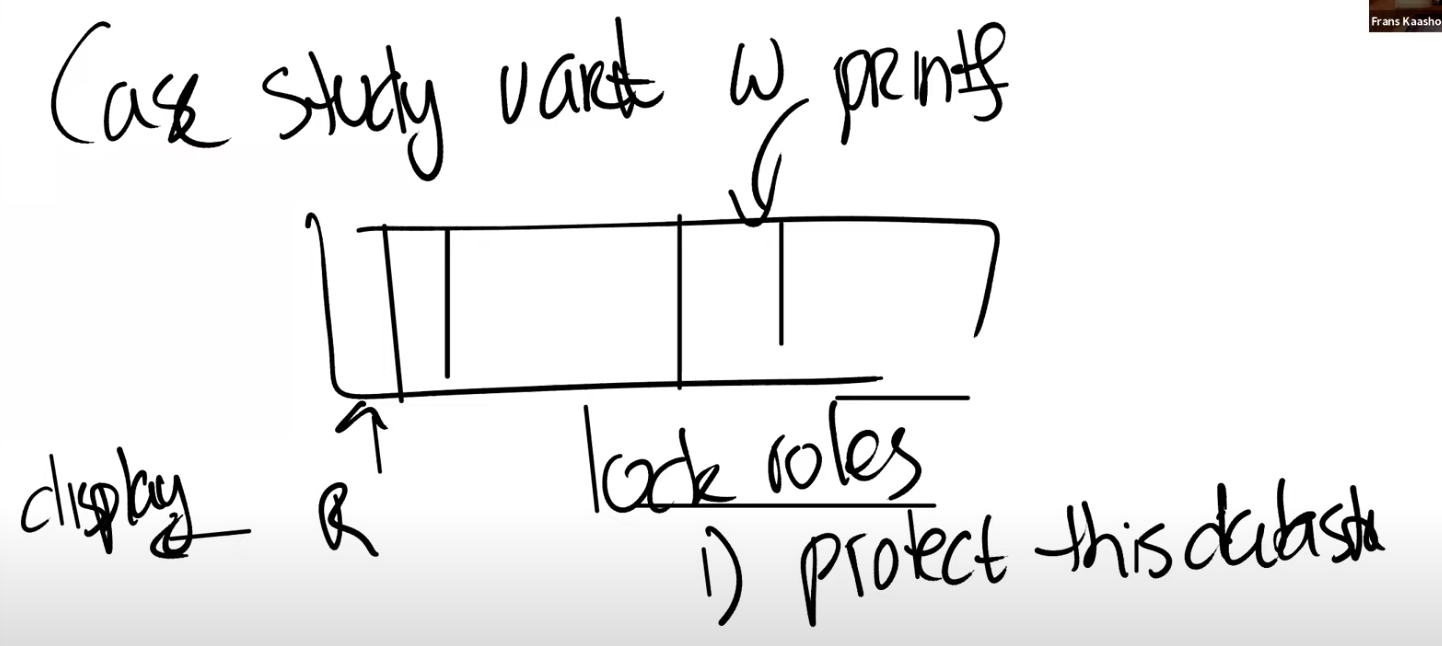 Frans Kaasho
Case study uart W printf
display R
lock roles
1) protect this datastu